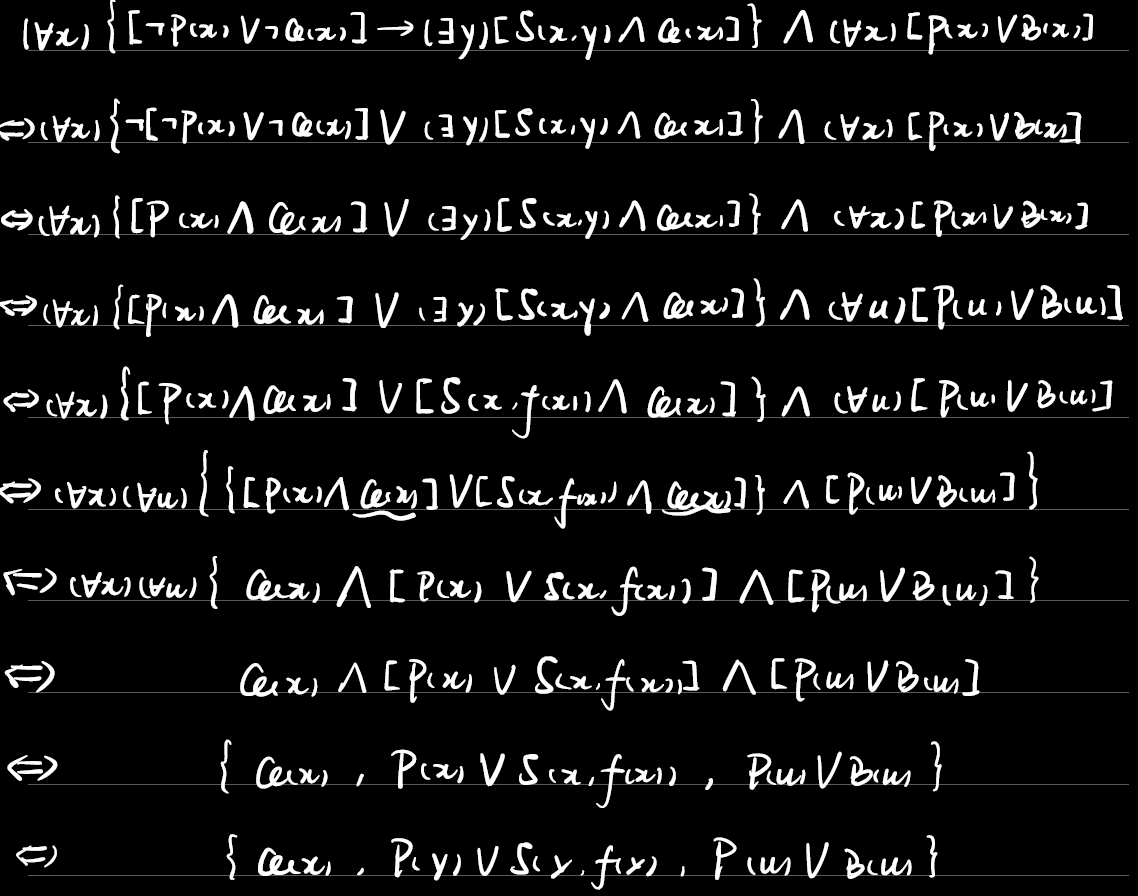 (∀x) {[¬P(x) ∨ ¬Q(x)] → (∃y)[S(x,y) ∧ Q(x)]} ∧ (∀x) [P(x) ∨ B(x)]
⇔ (∀x) {¬[¬P(x) ∨ ¬Q(x)] ∨ (∃y)[S(x,y) ∧ Q(x)]} ∧ (∀x) [P(x) ∨ B(x)]
⇔ (∀x) {[P(x) ∧ Q(x)] ∨ (∃y)[S(x,y) ∧ Q(x)]} ∧ (∀x) [P(x) ∨ B(x)]
⇔ (∀x) {[P(x) ∧ Q(x)] ∨ (∃y)[S(x,y) ∧ Q(x)]} ∧ (∀u) [P(u) ∨ B(u)]
⇔ (∀x) {[P(x) ∧ Q(x)] ∨ [S(x,f(x)) ∧ Q(x)]} ∧ (∀u) [P(u) ∨ B(u)]
⇔ (∀x)(∀u) {{[P(x) ∧ Q(x)] ∨ [S(x,f(x)) ∧ Q(x)]} ∧ [P(u) ∨ B(u)]}
⇔ (∀x)(∀u) { Q(x) ∧ [P(x) ∨ S(x,f(x))] ∧ [P(u) ∨ B(u)] }
⇔ Q(x) ∧ [P(x) ∨ S(x,f(x))] ∧ [P(u) ∨ B(u)]
⇔ { Q(x) , P(x) ∨ S(x,f(x)) , P(u) ∨ B(u) }
⇔ { Q(x) , P(y) ∨ S(y,f(y) , P(u) ∨ B(u) }